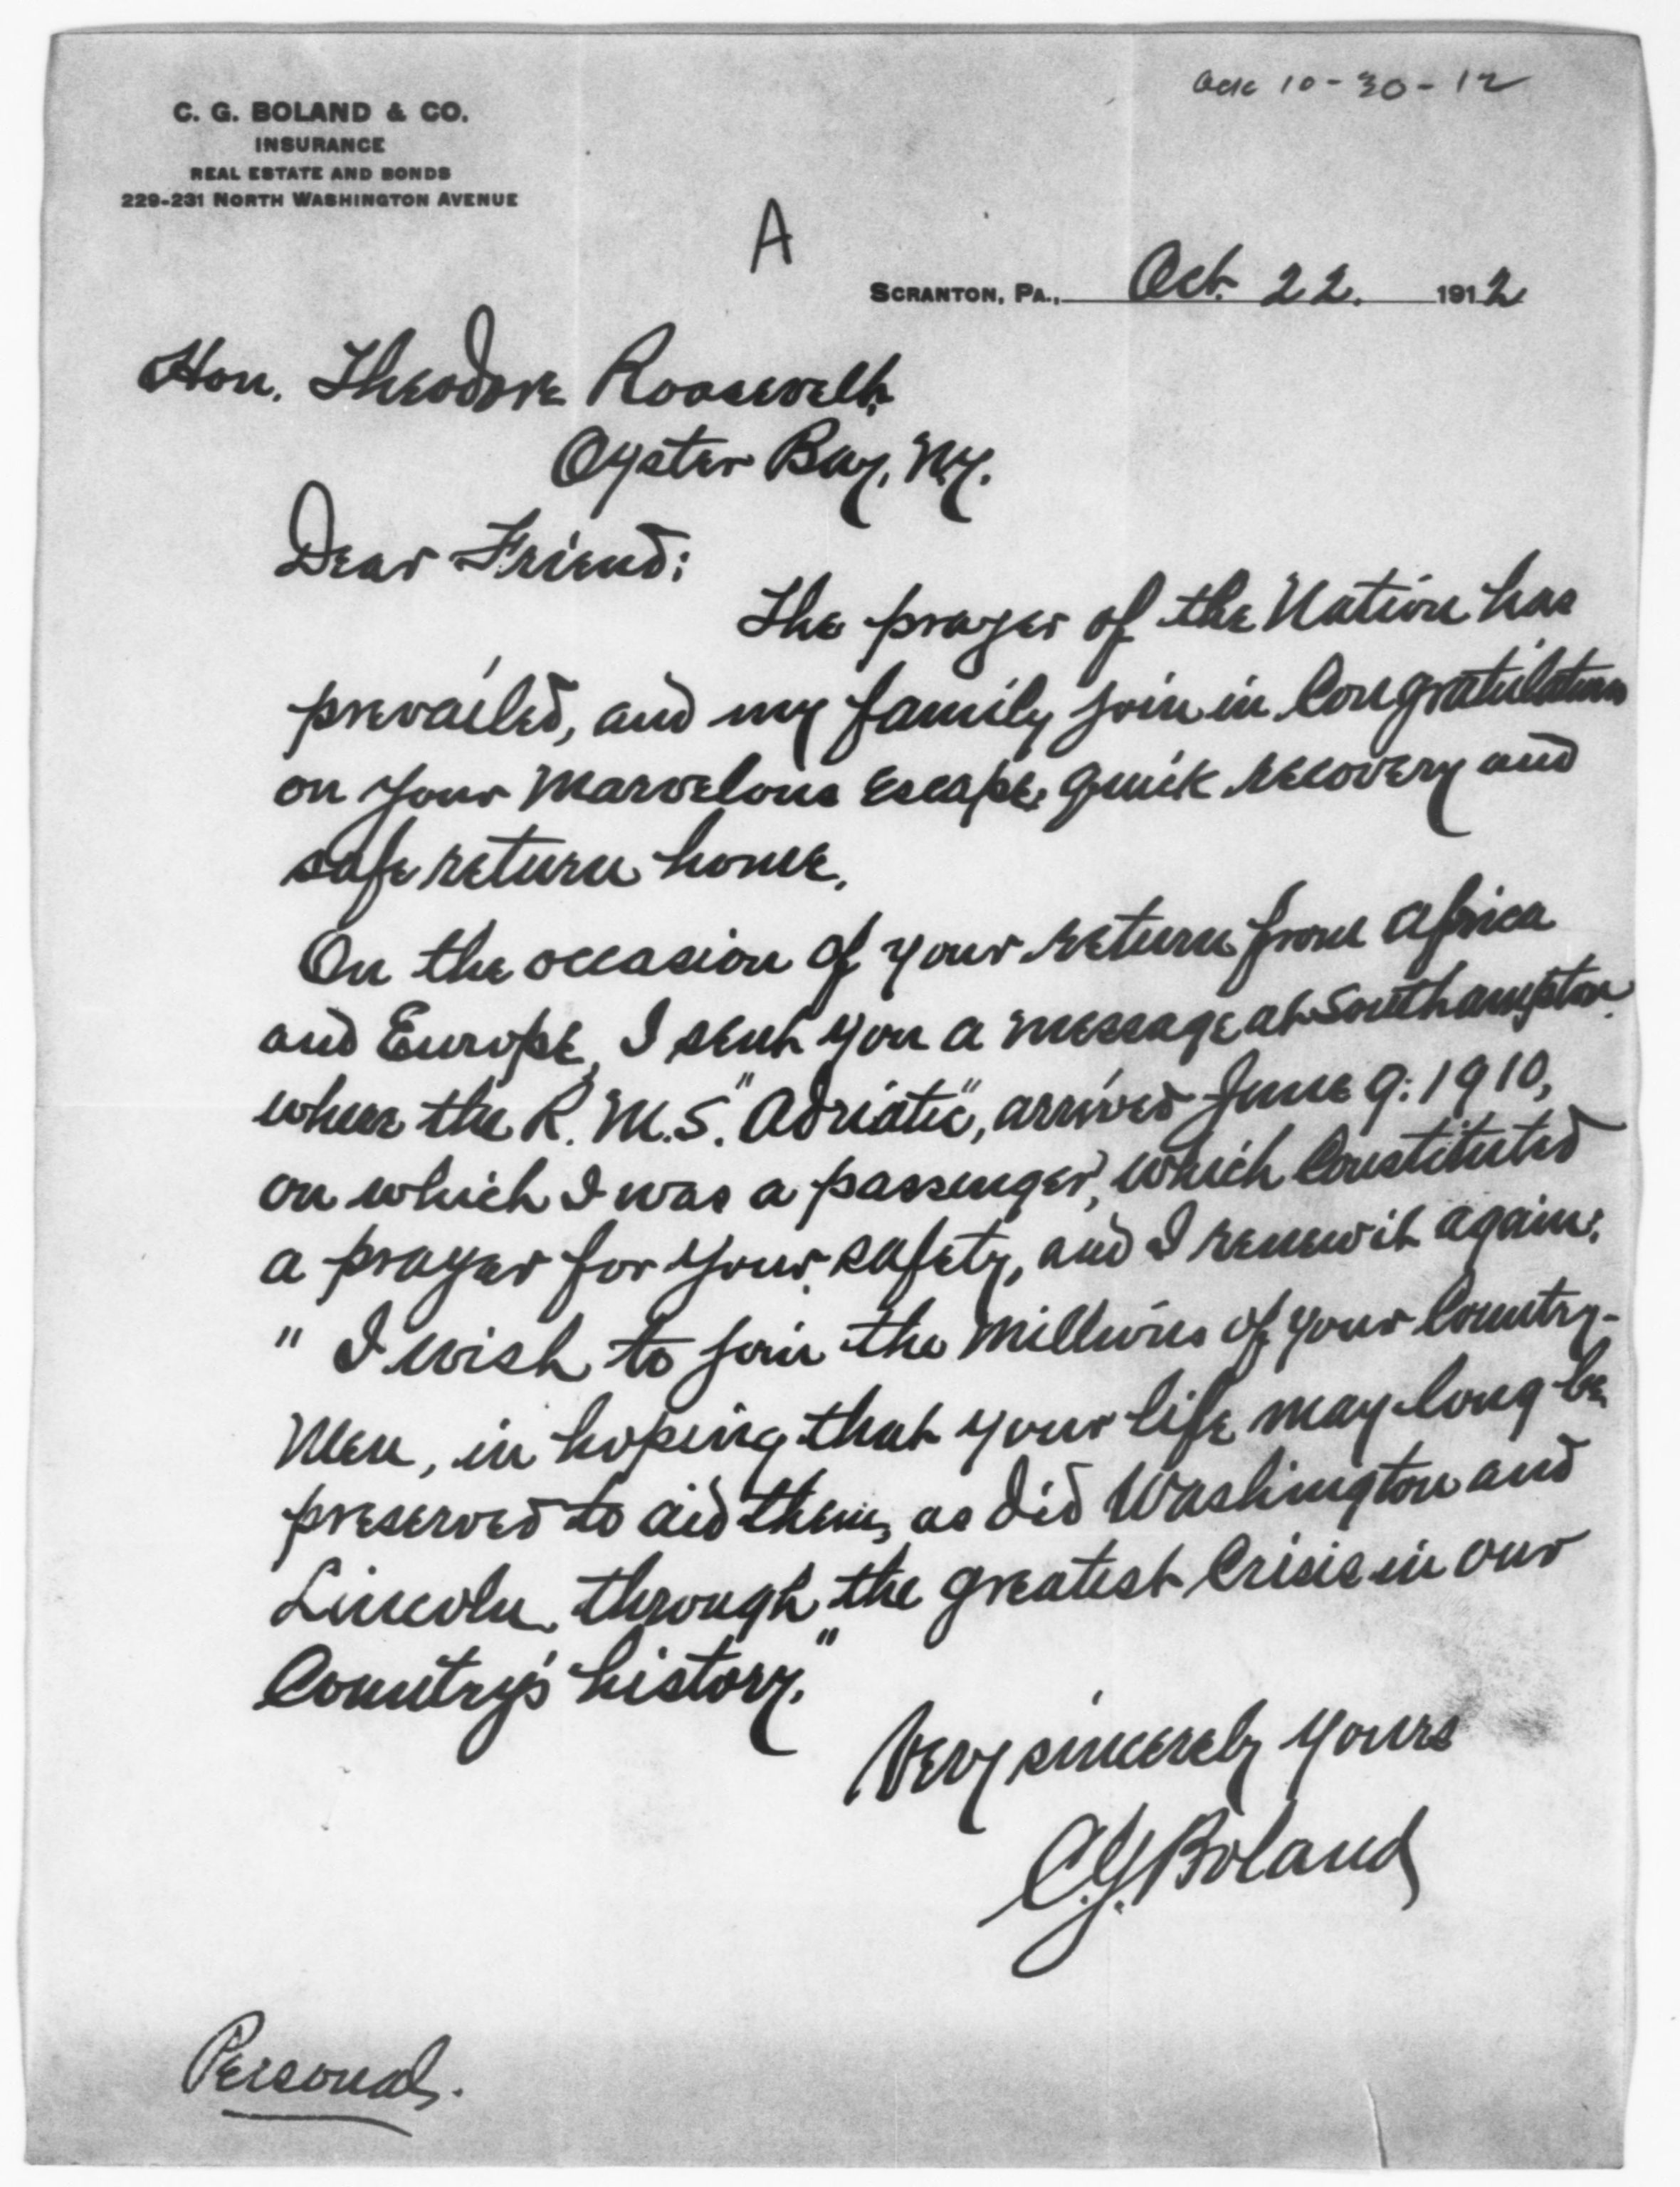 Ack 10-30-12
C. G. BOLAND & CO.
INSURANCE
REAL ESTATE AND BONDS
229-231 NORTH WASHINGTON AVENUE
A
SCRANTON, PA., Oct. 22. 1912
Hon. Theodore Roosevelt,
Oyster Bay, N.Y.
Dear Friend:
The prayer of the Nation has
prevailed, and my family join in Congratulations
on your marvelous escape, quick recovery and
safe return home.
On the occasion of your return from Africa
and Europe, I sent you a message at Southampton.
when the R.M.S. "Adriatic", arrived June 9: 1910,
on which I was a passenger, which Constituted
a prayer for your safety, and I renew it again:
" I wish to join the millions of your Country-
Men, in hoping that your life may long be
preserved to aid them, as did Washington and
Lincoln, through the greatest Crisis in our
Country's history."
Very sincerely yours
C.G. Boland
Personal.